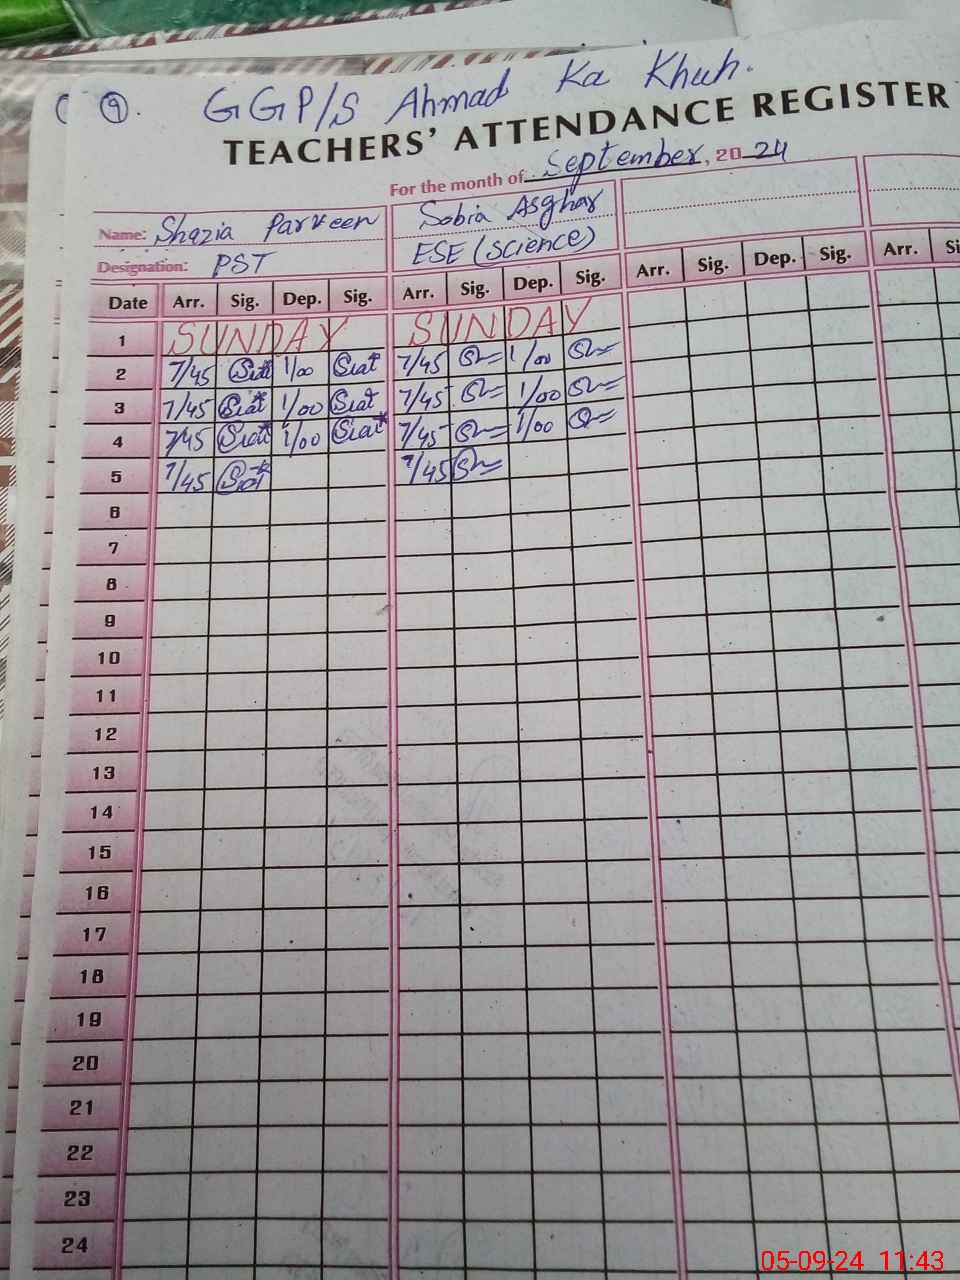 9. GGP/S Ahmad Ka Khuh.
TEACHERS' ATTENDANCE REGISTER
For the month of September, 2024
Name: Shazia Parveen Sobia Asghar
Designation: PST ESE (Science)
Date Arr. Sig. Dep. Sig. Arr. Sig. Dep. Sig. Arr. Sig. Dep. Sig. Arr. Si
1 SUNDAY SUNDAY
2 7/45 1/00 7/45 1/00
3 7/45 1/00 7/45 1/00
4 7/45 1/00 7/45 1/00
5 7/45 7/45
6
7
8
9
10
11
12
13
14
15
16
17
18
19
20
21
22
23
24
05-09-24 11:43